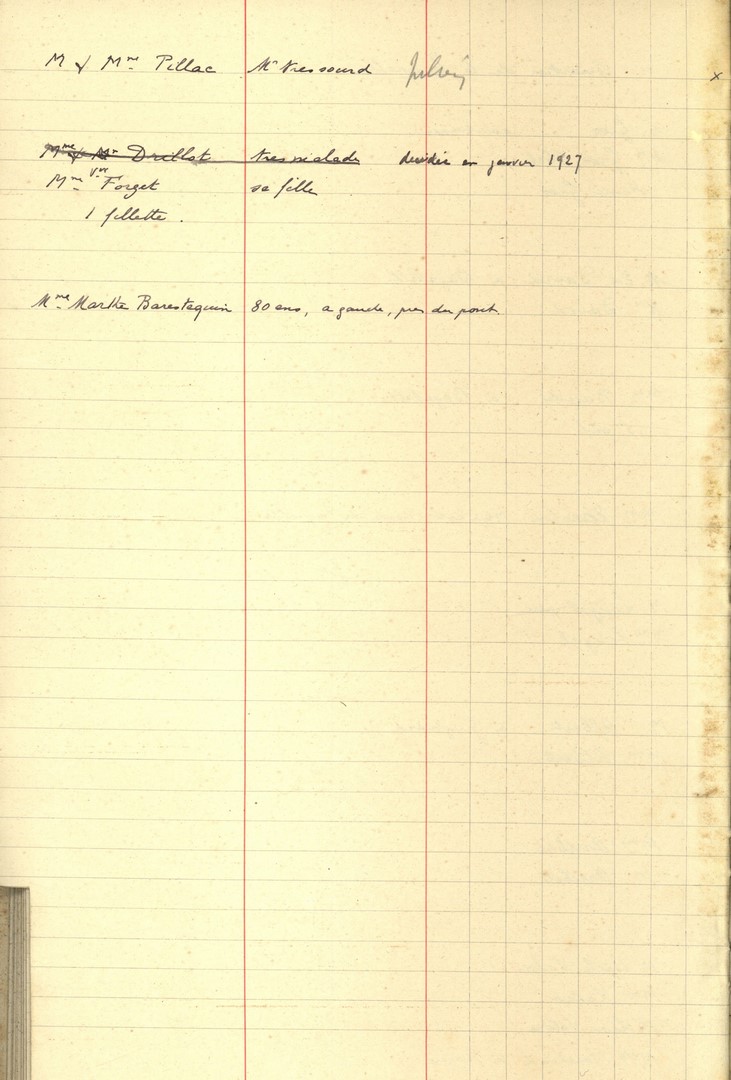 M & Mme Pillac Mr tres sourd
Mme & Mr Drillot tres malade décédée en janvier 1927
Mme Vve Forget sa fille
1 fillette.
Mme Marthe Barestequin 80 ans, a gauche, pres du pont.
x